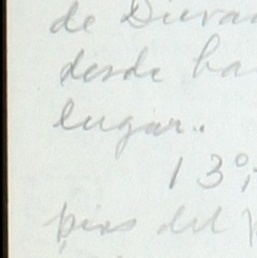 de Dieva
desde ha
lugar.
13º,
pies del